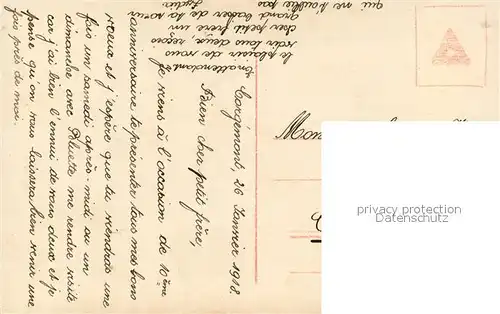 Corgémont, 26 Janvier 1918.
Bien cher petit frère,
Je viens à l'occasion de 10ème
anniversaire te présenter tous mes bons
vœux et j'espère que tu viendras une
fois un samedi après-midi ou un
dimanche avec Bluette me rendre visite
car j'ai bien l'ennui de vous deux et je
pense qu'on vous laissera bien venir une
fois près de moi.
En attendant
le plaisir de vous
voir tous deux, reçois
cher petit frère un
grand baiser de ta sœur
qui ne t'oublie pas
Lydia
privacy protection
privacy protection